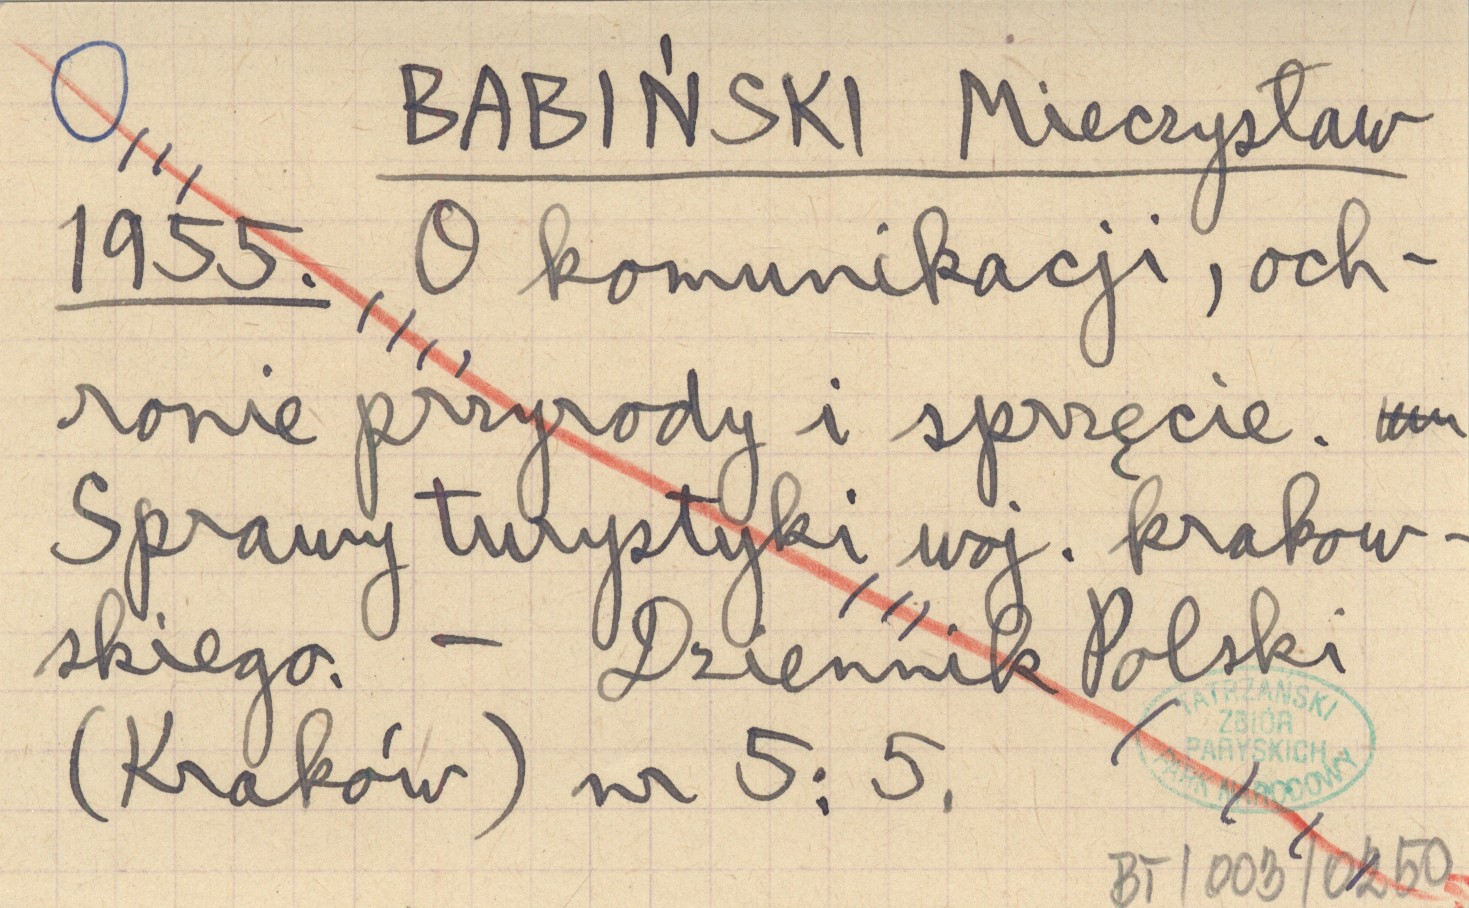 BABIŃSKI Mieczysław
1955. O komunikacji, och-
ronie przyrody i sprzęcie.
Sprawy turystyki woj. krakow-
skiego. – Dziennik Polski
(Kraków) nr 5: 5.
TATRZAŃSKI
ZBIÓR
PARYSKICH
PARK NARODOWY
BT/003/0250